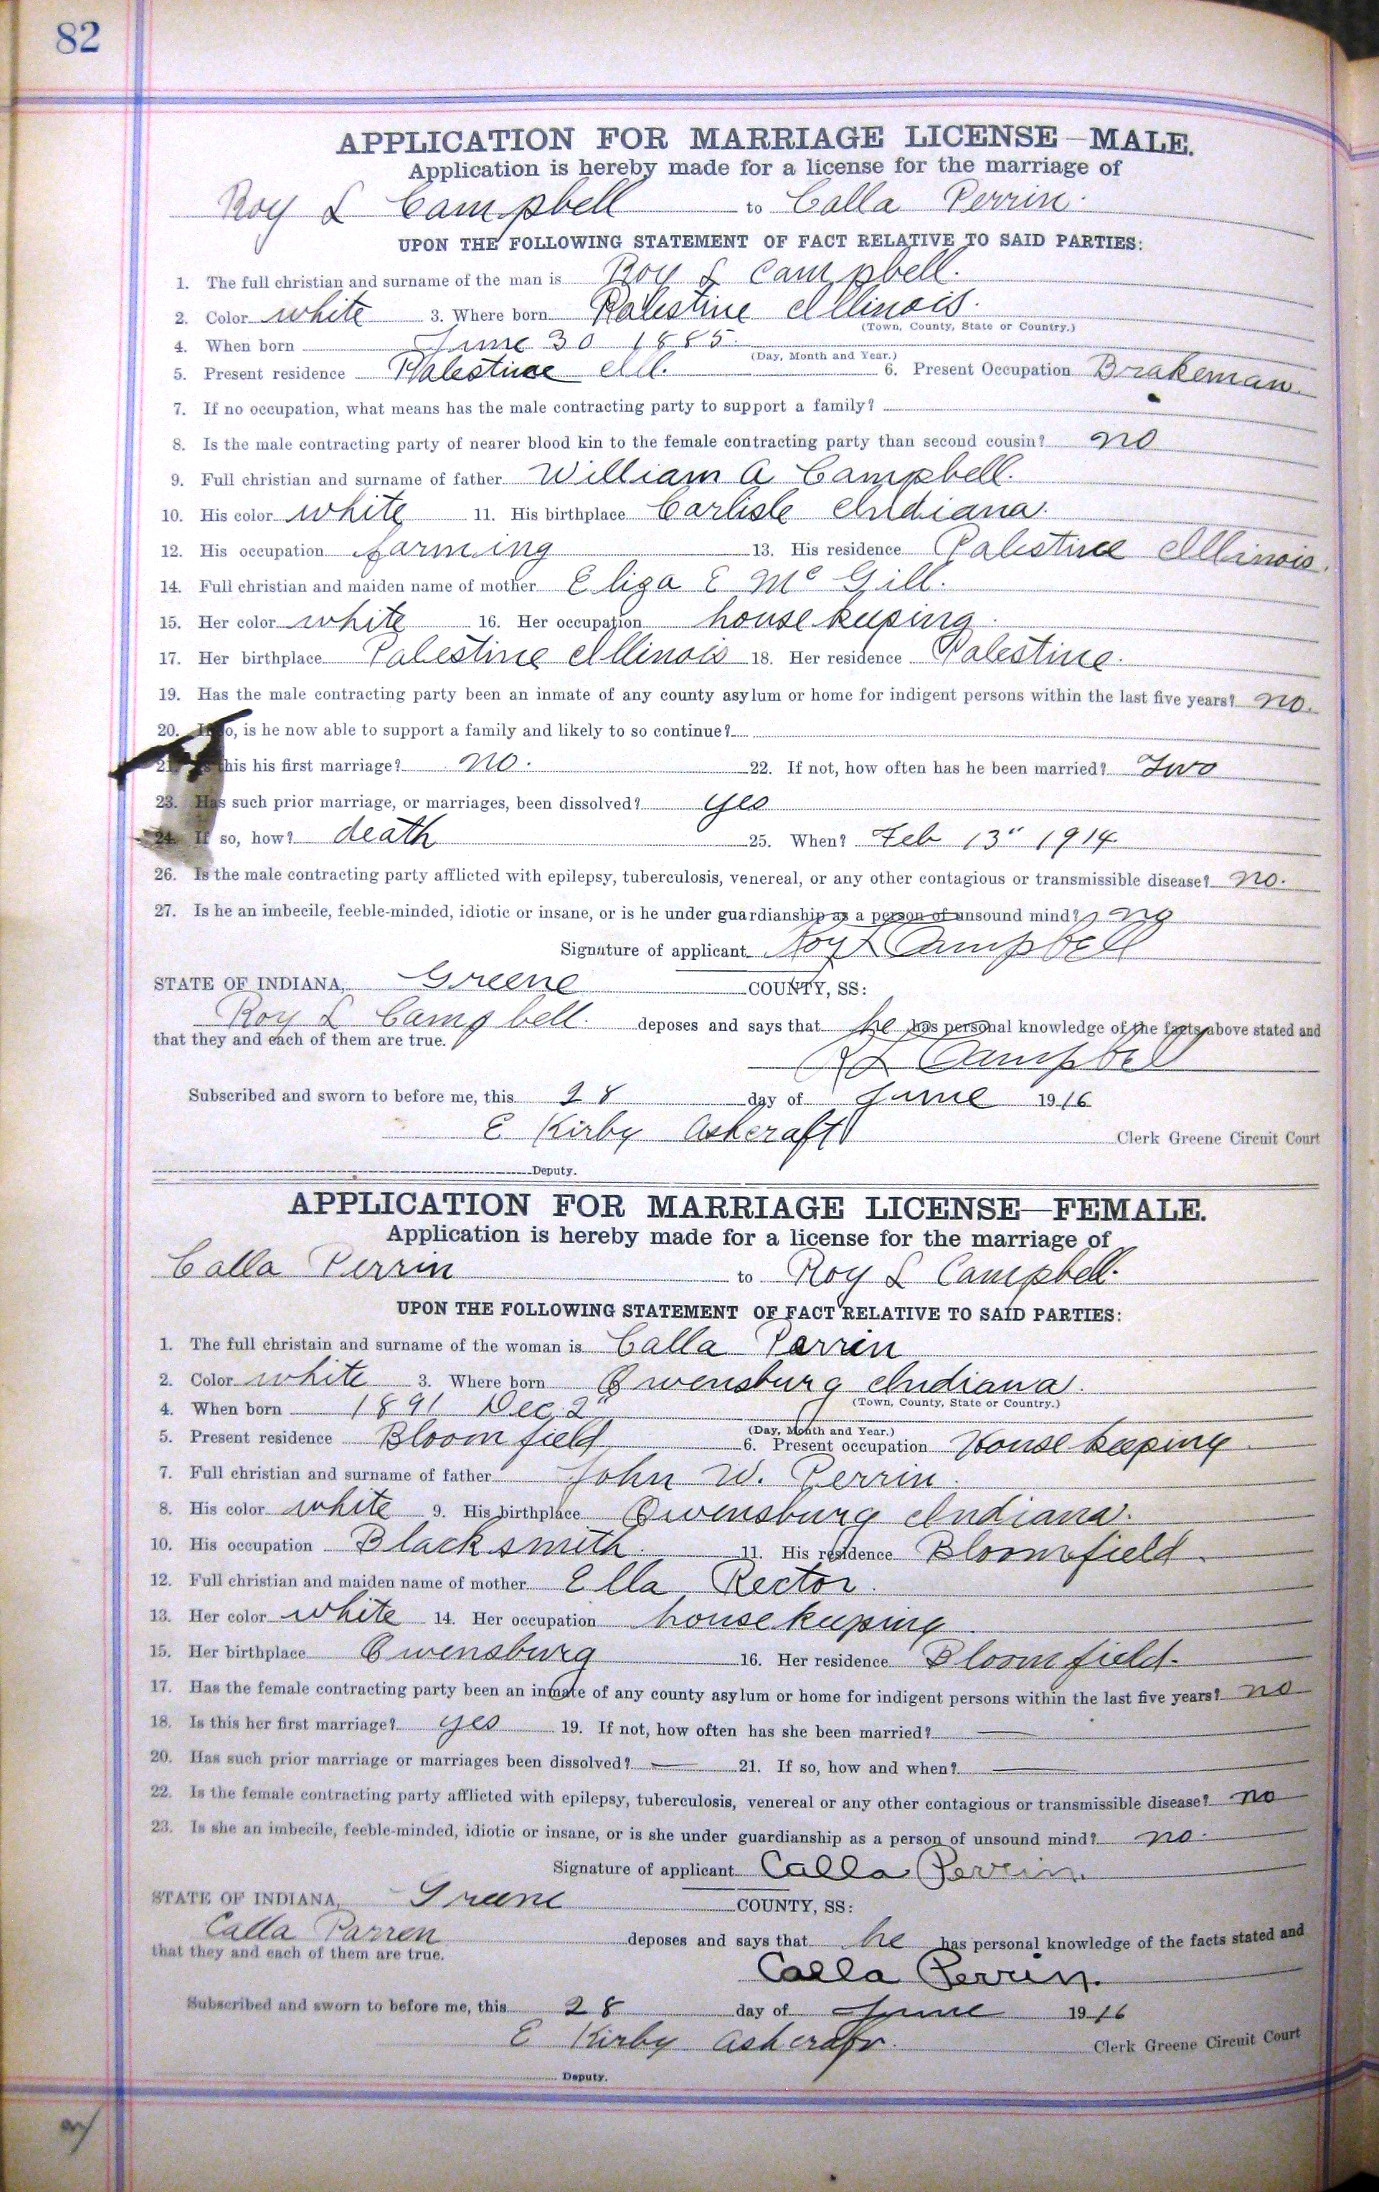 82
APPLICATION FOR MARRIAGE LICENSE—MALE.
Application is hereby made for a license for the marriage of
Roy L Campbell to Calla Perrin.
UPON THE FOLLOWING STATEMENT OF FACT RELATIVE TO SAID PARTIES:
1. The full christian and surname of the man is Roy L Campbell.
2. Color white 3. Where born Palestine Illinois.
(Town, County, State or Country.)
4. When born June 30 1885.
(Day, Month and Year.)
5. Present residence Palestine Ill. 6. Present Occupation Brakeman.
7. If no occupation, what means has the male contracting party to support a family?
8. Is the male contracting party of nearer blood kin to the female contracting party than second cousin? no
9. Full christian and surname of father William A Campbell.
10. His color white 11. His birthplace Carlisle Indiana.
12. His occupation farming 13. His residence Palestine Illinois.
14. Full christian and maiden name of mother Eliza E McGill.
15. Her color white 16. Her occupation house keeping.
17. Her birthplace Palestine Illinois 18. Her residence Palestine.
19. Has the male contracting party been an inmate of any county asylum or home for indigent persons within the last five years? no.
20. If so, is he now able to support a family and likely to so continue?
21. Is this his first marriage? no. 22. If not, how often has he been married? Two
23. Has such prior marriage, or marriages, been dissolved? yes
24. If so, how? death 25. When? Feb 13" 1914
26. Is the male contracting party afflicted with epilepsy, tuberculosis, venereal, or any other contagious or transmissible disease? no.
27. Is he an imbecile, feeble-minded, idiotic or insane, or is he under guardianship as a person of unsound mind? no
Signature of applicant Roy L Campbell
STATE OF INDIANA, Greene COUNTY, SS:
Roy L Campbell. deposes and says that he has personal knowledge of the facts above stated and
that they and each of them are true.
R L Campbell
Subscribed and sworn to before me, this 28 day of June 1916
E Kirby Ashcraft Clerk Greene Circuit Court
Deputy.
APPLICATION FOR MARRIAGE LICENSE—FEMALE.
Application is hereby made for a license for the marriage of
Calla Perrin to Roy L Campbell.
UPON THE FOLLOWING STATEMENT OF FACT RELATIVE TO SAID PARTIES:
1. The full christain and surname of the woman is Calla Perrin
2. Color white 3. Where born Owensburg Indiana.
(Town, County, State or Country.)
4. When born 1891 Dec 2"
(Day, Month and Year.)
5. Present residence Bloomfield 6. Present occupation House keeping
7. Full christian and surname of father John W. Perrin.
8. His color white 9. His birthplace Owensburg Indiana.
10. His occupation Blacksmith. 11. His residence Bloomfield.
12. Full christian and maiden name of mother Ella Rector.
13. Her color white 14. Her occupation house keeping.
15. Her birthplace Owensburg 16. Her residence Bloomfield.
17. Has the female contracting party been an inmate of any county asylum or home for indigent persons within the last five years? no
18. Is this her first marriage? yes 19. If not, how often has she been married? —
20. Has such prior marriage or marriages been dissolved? — 21. If so, how and when? —
22. Is the female contracting party afflicted with epilepsy, tuberculosis, venereal or any other contagious or transmissible disease? no
23. Is she an imbecile, feeble-minded, idiotic or insane, or is she under guardianship as a person of unsound mind? no.
Signature of applicant Calla Perrin.
STATE OF INDIANA, Greene COUNTY, SS:
Calla Parren deposes and says that he has personal knowledge of the facts stated and
that they and each of them are true.
Calla Perrin.
Subscribed and sworn to before me, this 28 day of June 1916
E Kirby Ashcraft. Clerk Greene Circuit Court
Deputy.